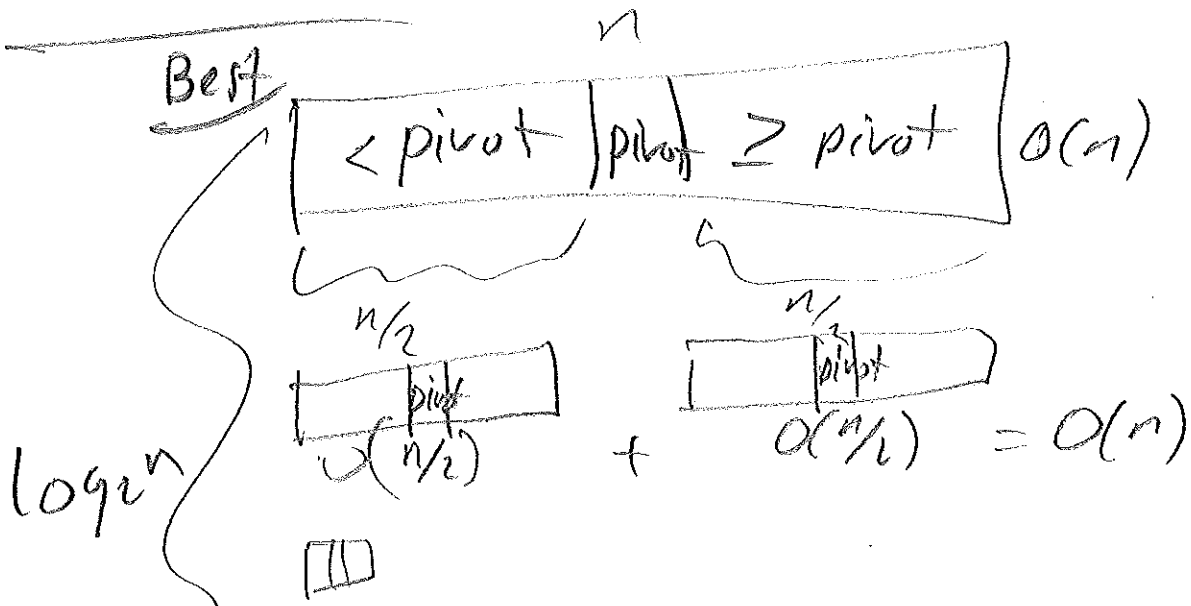 n
Best
< pivot | pivot | ≥ pivot O(n)
n/2 n/2
pivot pivot
O(n/2) + O(n/2) = O(n)
log₂n